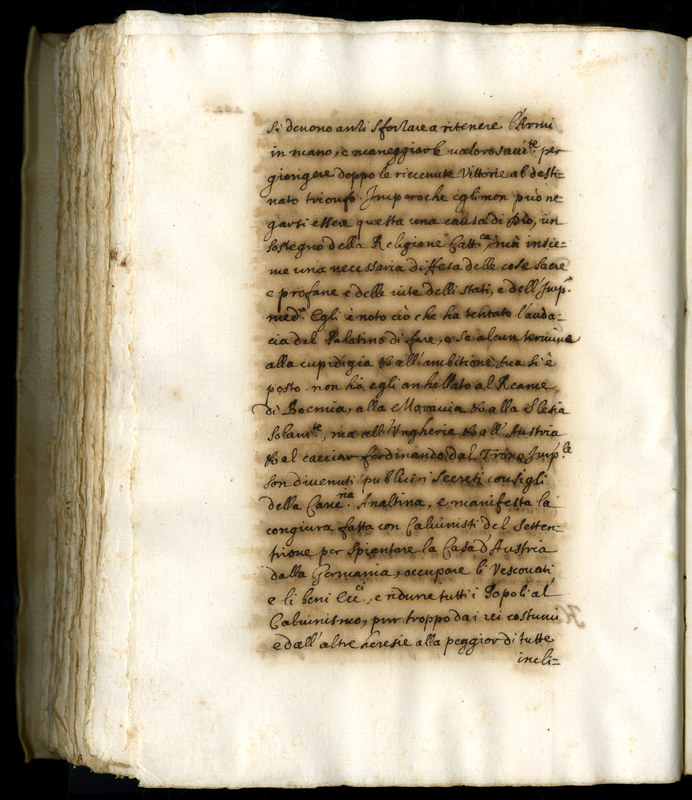 si devono anzi sforzare a ritenere l'Armi
in mano, e maneggiarle valorosam.te per
giongere doppo le riceuute Vittorie al desti=
nato trionfo. Imperoche egli non può ne=
garsi essere questa una causa di Dio, un
sostegno della Religione Catt.ca, mà insie=
me una necessaria diffesa delle cose sacre
e profane e delle vite delli stati, e dell'Imp.o
med.o Egli è noto ciò che ha tentato l'auda=
cia del Palatino di fare, e se alcun termine
alla cupidigia & all'ambitione sua si è
posto. non hà egli anhellato al Reame
di Boemia, alla Moravia & alla Slesia
solam.te, ma all'Ungheria & all'Austria
& al cacciar ferdinando dal Trono Imp.le
son divenuti publici i secreti consigli
della Canc.ria Analtina, e manifesta la
congiura fatta con Caluinisti del Setten=
trione per spiantare la Casa d'Austria
dalla Germania, occupare li Vescouati
e li beni Ecc.ci, e ridurre tutti i Popoli al
Caluinismo, pur troppo da i rei costumi
e dall'altre heresie alla peggior di tutte
incli=